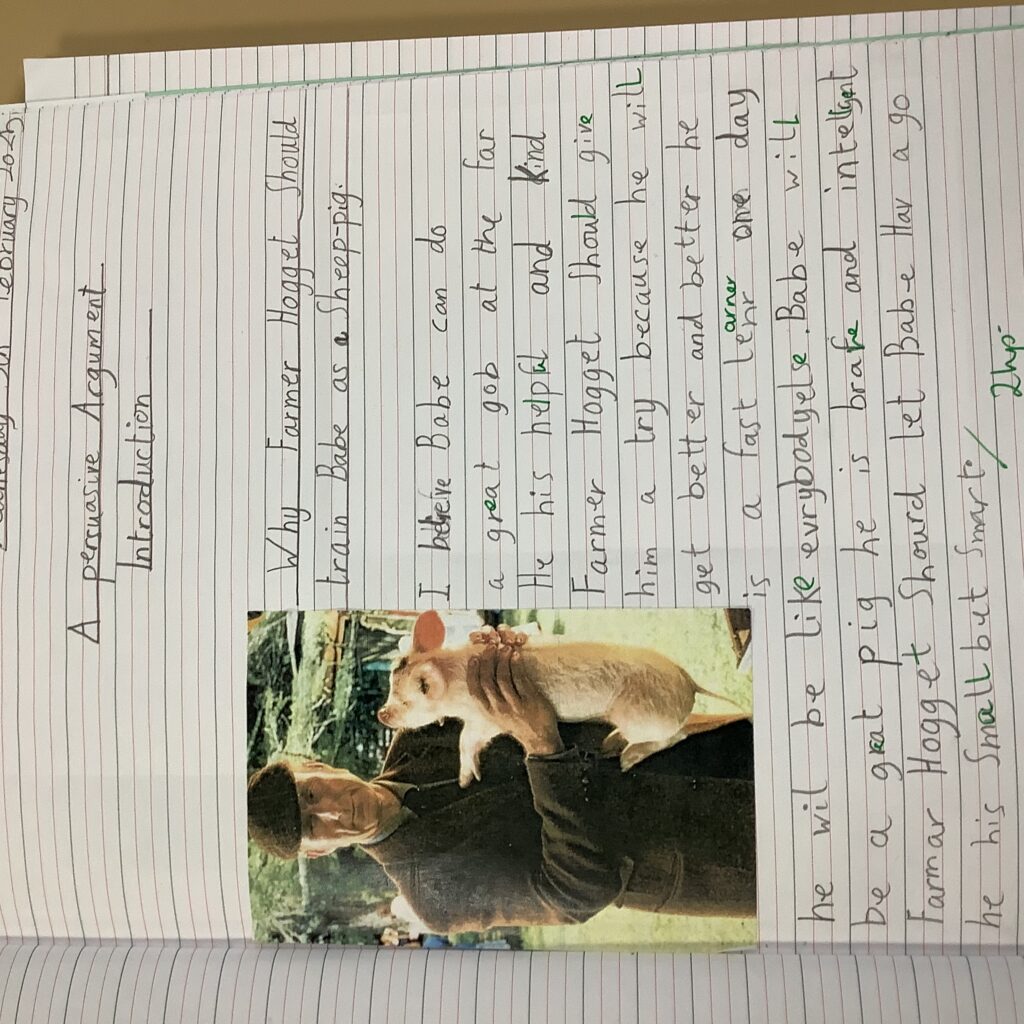 February 2025
A persuasive Argument
Introduction
Why Farmer Hogget Should
train Babe as a Sheep-pig.
I believe Babe can do
a great gob at the far
He his helpful and kind
Farmer Hogget Should give
him a try because he will
get better and better he
is a fast learner one day
he wil be like evrybodyelse. Babe will
be a great pig he is brave and intelligent
Farmar Hogget Shourd let Babe Hav a go
he his Small but Smart.
2hp